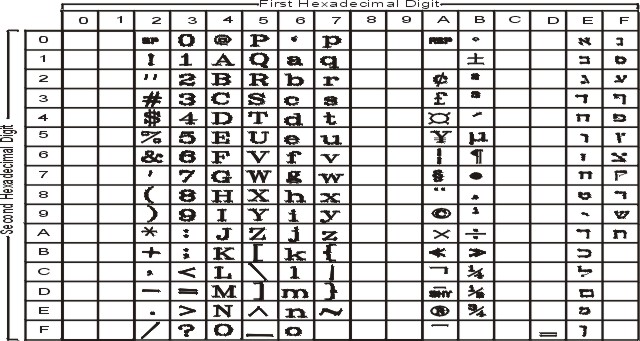 First Hexadecimal Digit
Second Hexadecimal Digit
0 1 2 3 4 5 6 7 8 9 A B C D E F
0 SP 0 @ P ` p NBSP ° א נ
1 ! 1 A Q a q ± ב ס
2 " 2 B R b r ¢ ² ג ע
3 # 3 C S c s £ ³ ד ף
4 $ 4 D T d t ¤ ´ ה פ
5 % 5 E U e u ¥ µ ו ץ
6 & 6 F V f v ¦ ¶ ז צ
7 ' 7 G W g w § • ח ק
8 ( 8 H X h x ¨ ¸ ט ר
9 ) 9 I Y i y © ¹ י ש
A * : J Z j z × ÷ ך ת
B + ; K [ k { « » כ
C , < L \ l | ¬ ¼ ל
D - = M ] m } SHY ½ ם
E . > N ^ n ~ ® ¾ מ
F / ? O _ o ¯ ‗ ן